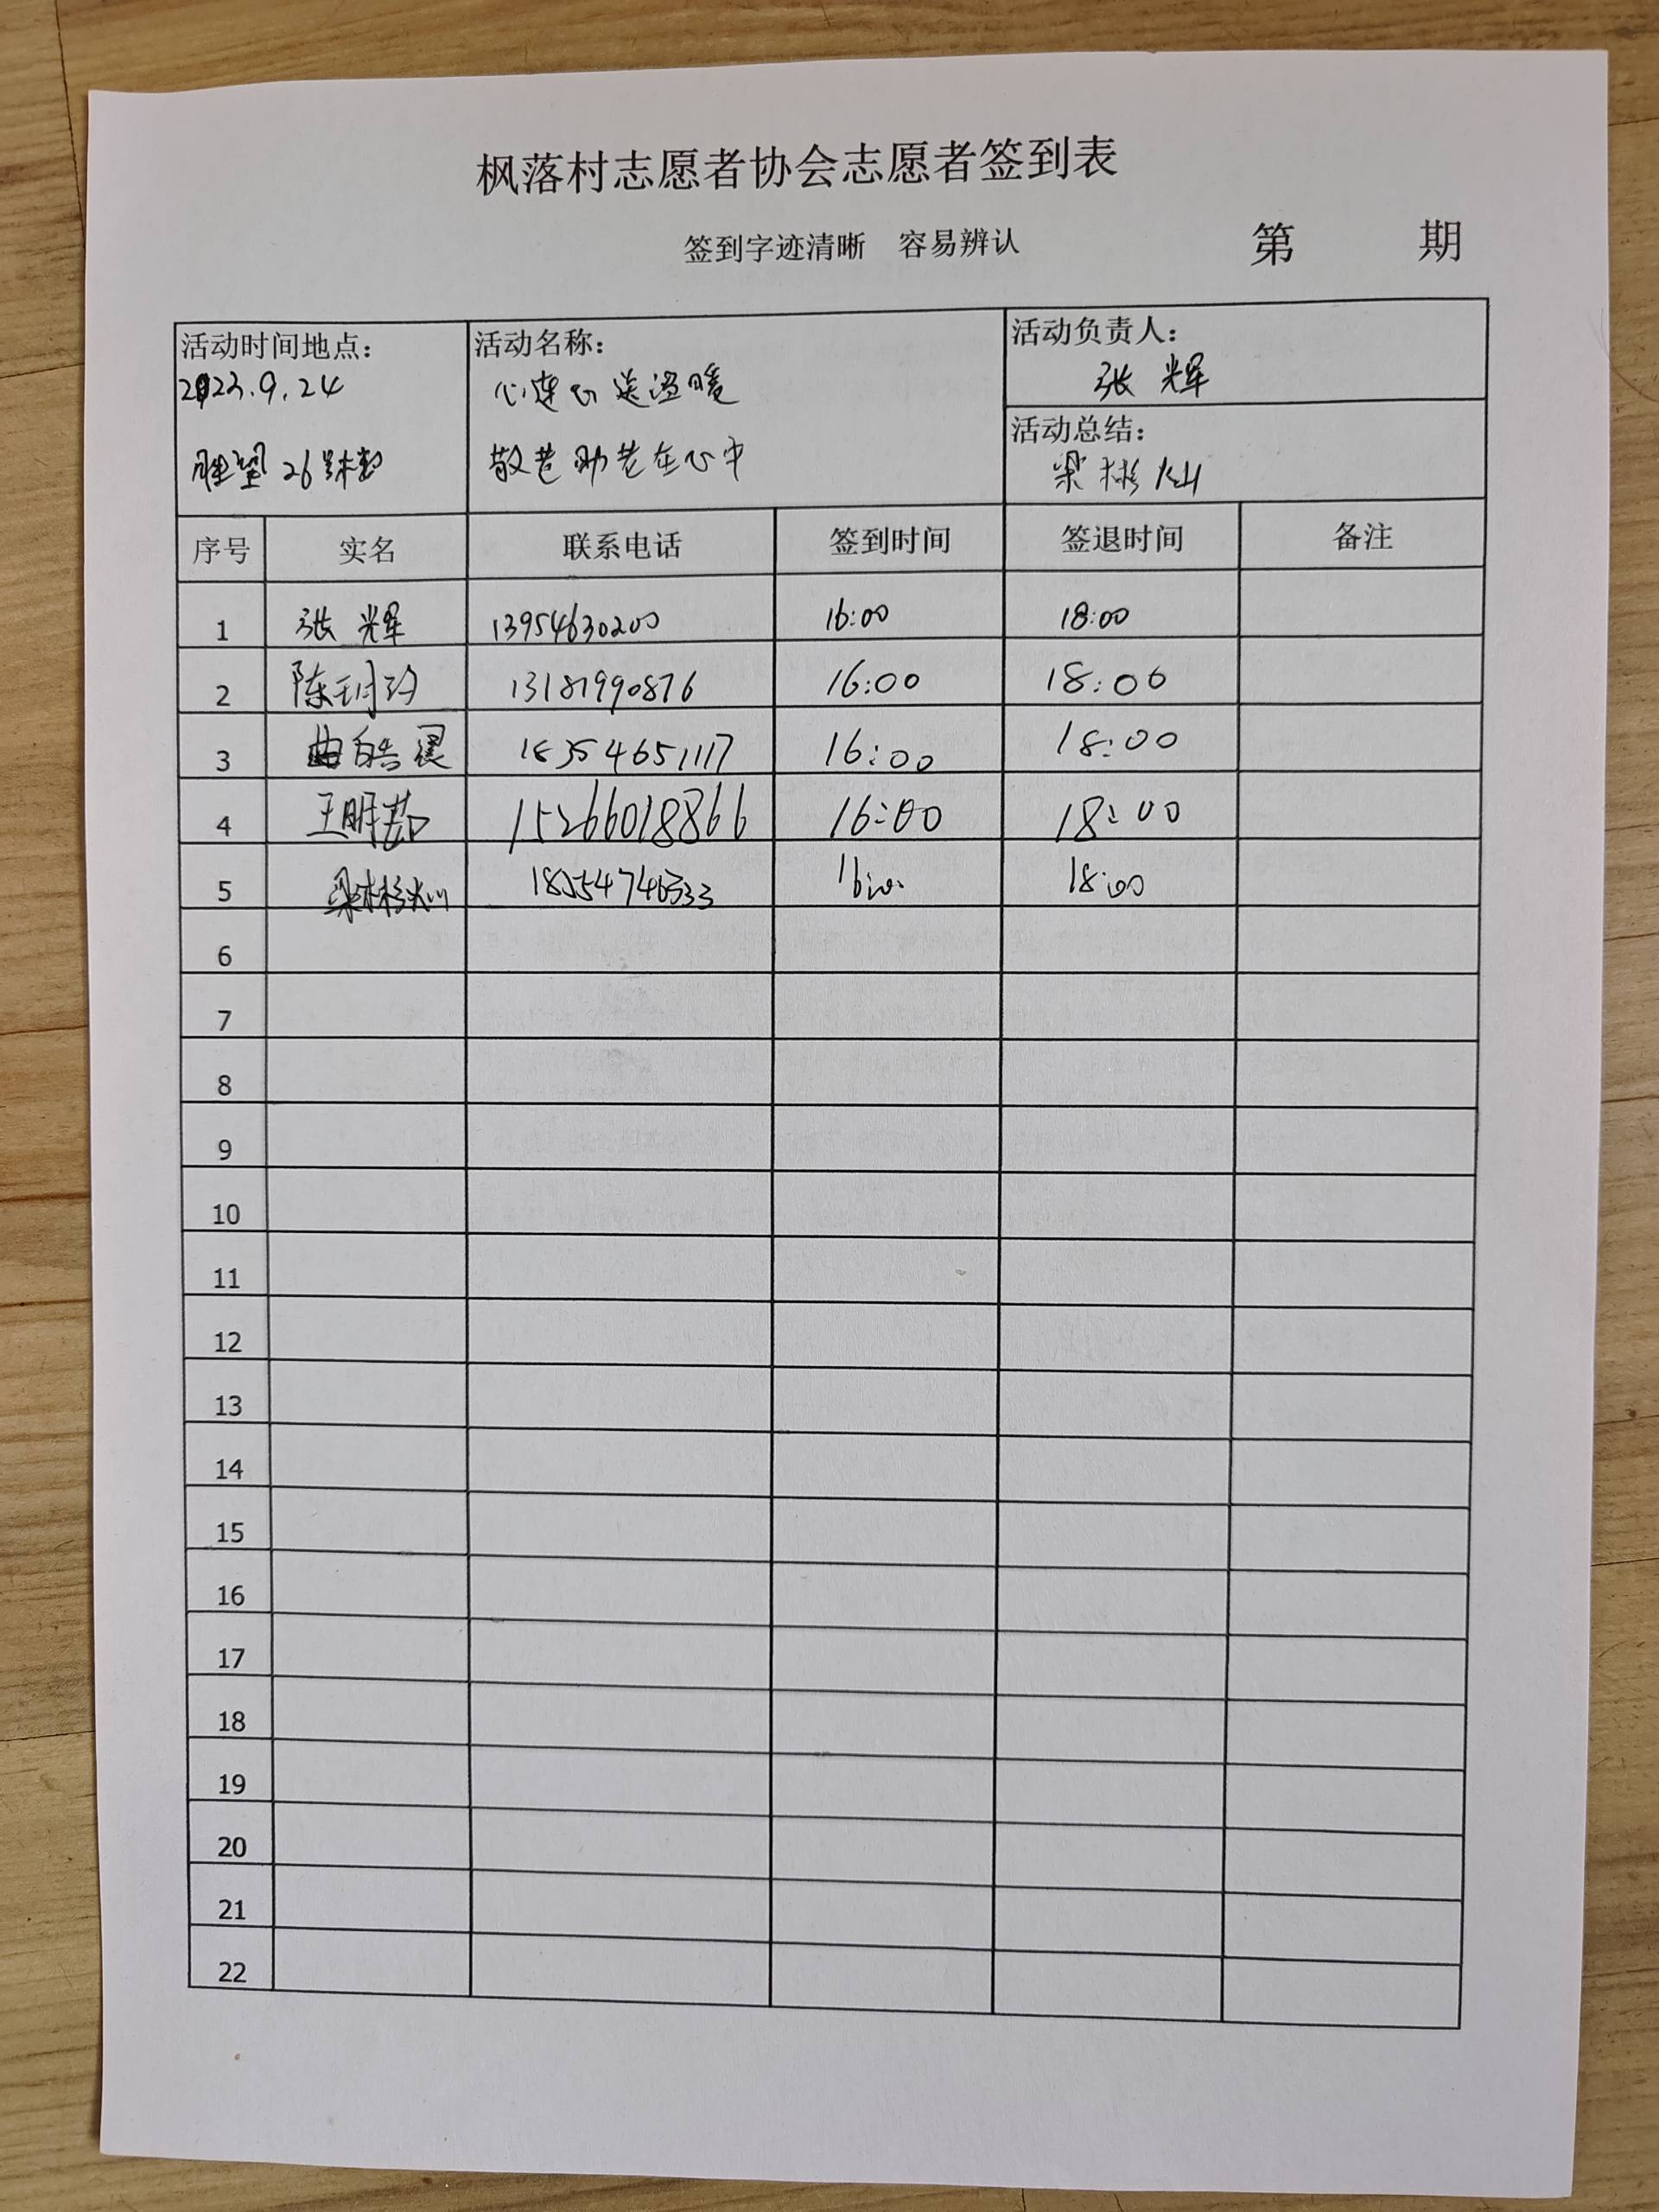 枫落村志愿者协会志愿者签到表
签到字迹清晰 容易辨认 第 期
活动时间地点: 活动名称: 活动负责人:
2023.9.24 心连心送温暖 张辉
敬老助老在心中 活动总结:
26 梁彬灿
序号 实名 联系电话 签到时间 签退时间 备注
1 张辉 13954630200 16:00 18:00
2 陈玥 13181990876 16:00 18:00
3 曲皓 18354651117 16:00 18:00
4 王明 15266018866 16:00 18:00
5 梁彬灿 16:00 18:00
6
7
8
9
10
11
12
13
14
15
16
17
18
19
20
21
22